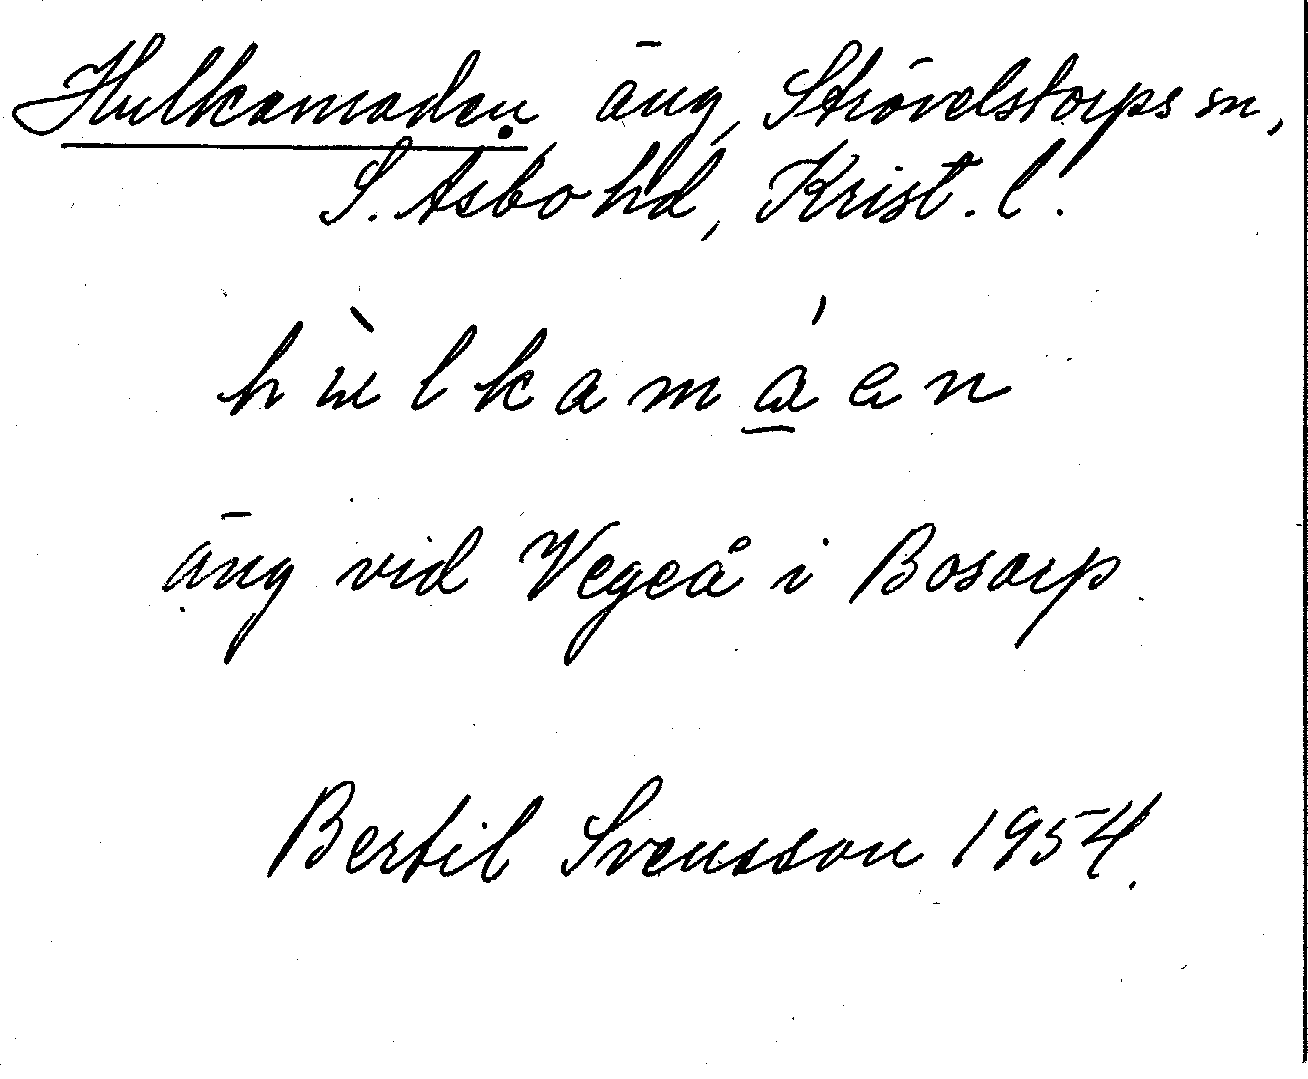 Hulkamaden, äng, Strövelstorps sn,
S. Åsbo hd, Krist. l.
hùlkamáen
äng vid Vegeå i Bosarp
Bertil Svensson 1954.